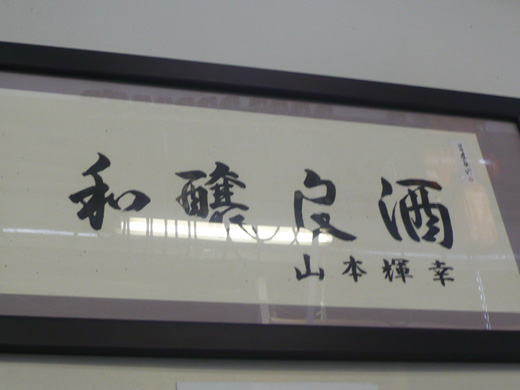 和醸良酒
山本輝幸